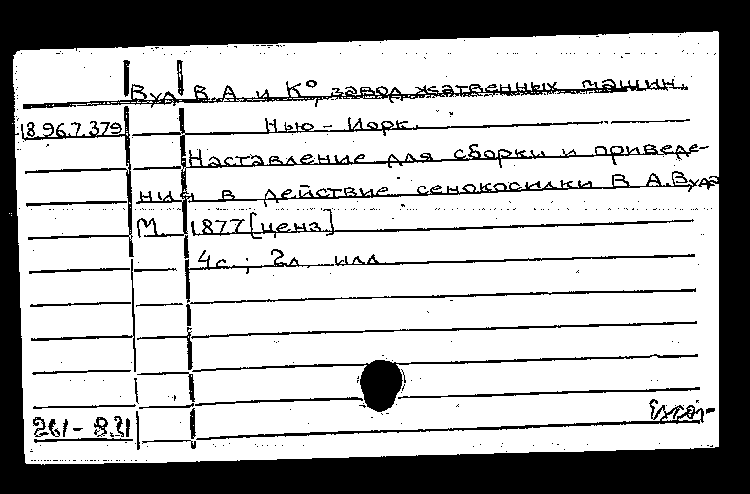 Вуд В.А. и К°, завод жатвенных машин.
18.96.7.379 Нью-Иорк.
Наставление для сборки и приведе-
ния в действие сенокосилки В.А.Вуда
М. 1877[ценз]
4с.; 2л. илл
261-8.31